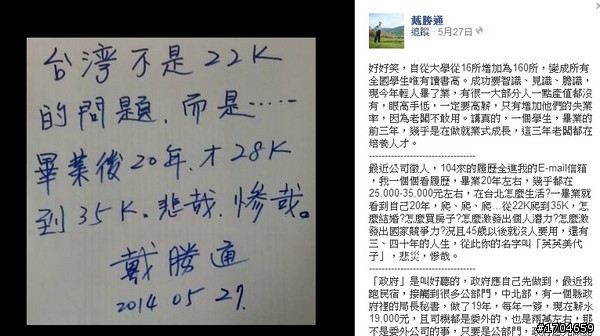 台湾不是22K
的問題，而是……
畢業後20年，才28K
到35K。悲哉，慘哉。
戴勝通
2014 05 27.
戴勝通
追蹤 · 5月27日
好好笑，自從大學從16所增加為160所，變成所有
全國學生唯有讀書高。成功要智識、見識、膽識，
現今年輕人畢了業，有很一大部分人一點產值都沒
有，眼高手低，一定要高薪，只有增加他們的失業
率，因為老闆不敢用。講真的，一個學生，畢業的
前三年，幾乎是在做就業式成長，這三年老闆都在
培養人才。
最近公司徵人，104來的履歷全進我的E-mail信箱
，我一個個看履歷，畢業20年左右，幾乎都在
25,000-35,000元左右，在台北怎麼生活?一畢業就
看到自己20年，爬、爬、爬…從22K爬到35K，怎
麼結婚?怎麼買房子?怎麼激發出個人潛力?怎麼激
發出國家競爭力?況且45歲以後就沒人要用，還有
三、四十年的人生，從此你的名字叫「英英美代
子」，悲災，慘哉。
「政府」是叫好聽的，政府應自己先做到，最近我
跑民宿，接觸到很多公部門，中北部，有一個縣政
府裡的局長秘書，做了19年，每年一簽，現在薪水
19,000元，且司機都是委外的，也是兩萬左右，那
不是委外公司的事，只要是公部門，政府
#1704659